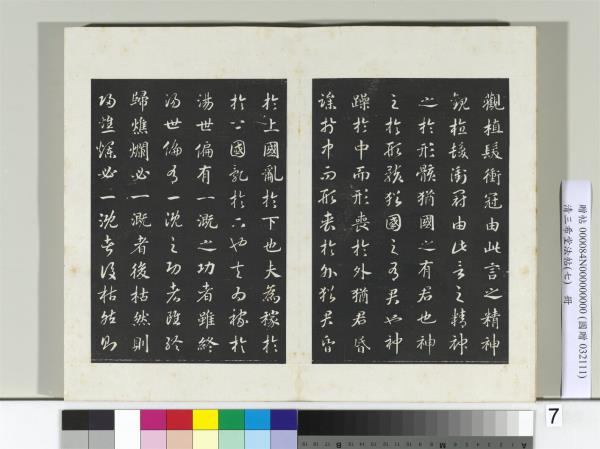 觀植髮衝冠由此言之精神
觀植髮衝冠由此言之精神
之於形骸猶國之有君也神
之於形骸猶國之有君也神
躁於中而形喪於外猶君昏
躁於中而形喪於外猶君昏
於上國亂於下也夫為稼於
於上國亂於下也夫為稼於
湯世偏有一溉之功者雖終
湯世偏有一溉之功者雖終
歸燋爛必一溉者後枯然則
歸燋爛必一溉者後枯然則
贈帖 000084N000000000 (國贈 032111)
清三希堂法帖(七) 冊
7